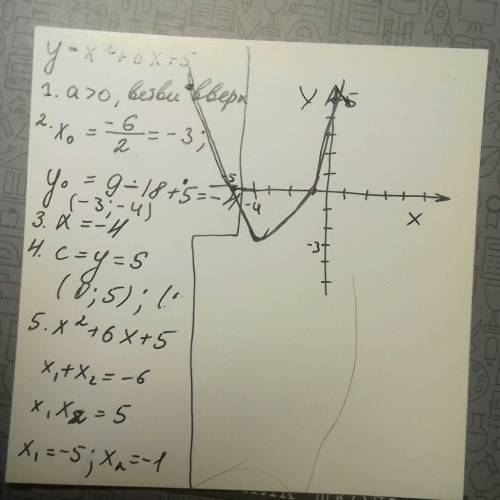 y = x² + 6x + 5
1. a > 0, ветви вверх
2. x₀ = -6/2 = -3;
y₀ = 9 - 18 + 5 = -4
(-3; -4)
3. x = -4
4. c = y = 5
(0; 5); (
5. x² + 6x + 5
x₁ + x₂ = -6
x₁ x₂ = 5
x₁ = -5; x₂ = -1
y
5
-5
-4
x
-3